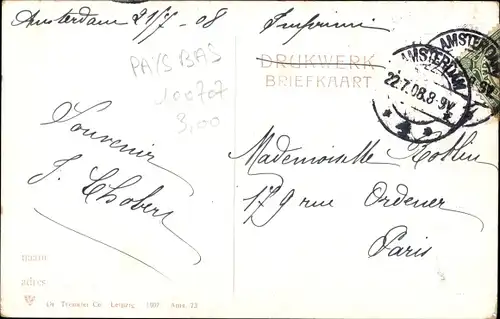 Amsterdam 21/7 - 08 Imprimé
PAYS BAS
100707
3,00
DRUKWERK
BRIEFKAART
AMSTERDAM
22.7.08.8-9V
4
AMSTERDAM
Souvenir
J. Chobert
Mademoiselle
179 rue Ordener
Paris
NAAM
ADRES
Dr Trenkler Co. Leipzig. 1907 Ams. 23